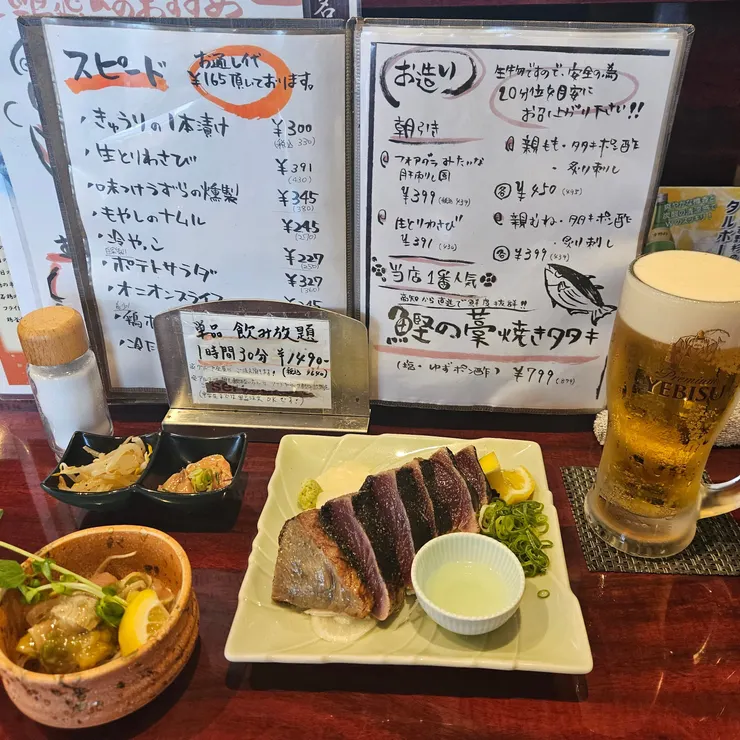 スピード
お通し代
¥165頂いております。
・きゅうりの1本漬け
¥300
(税込 330)
・生とりわさび
¥391
(430)
・味つけうずらの燻製
¥345
(380)
・もやしのナムル
¥245
(270)
・冷やっこ
¥227
(250)
・ポテトサラダ
¥327
・オニオンスライス
単品 飲み放題
1時間30分 ¥1490-
お造り
生物ですので、安全の為
20分位を目安に
お召上がり下さい!!
朝引き
フォアグラみたいな
肝刺し風
¥399
生とりわさび
¥391 (430)
親もも・タタキポン酢
・炙り刺し
¥450 (495)
親むね・タタキポン酢
・炙り刺し
¥399 (439)
当店1番人気
高知から直送で鮮度抜群!!
鰹の藁焼きタタキ
(塩・ゆずポン酢) ¥799 (879)
YEBISU